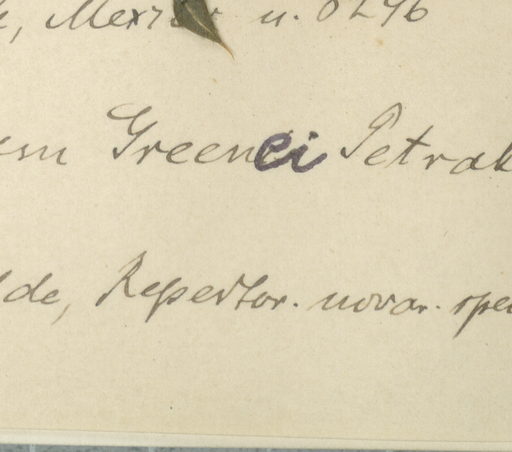 Mexico n. 8246
Greenei Petrak
de, Repertor. novar. spec